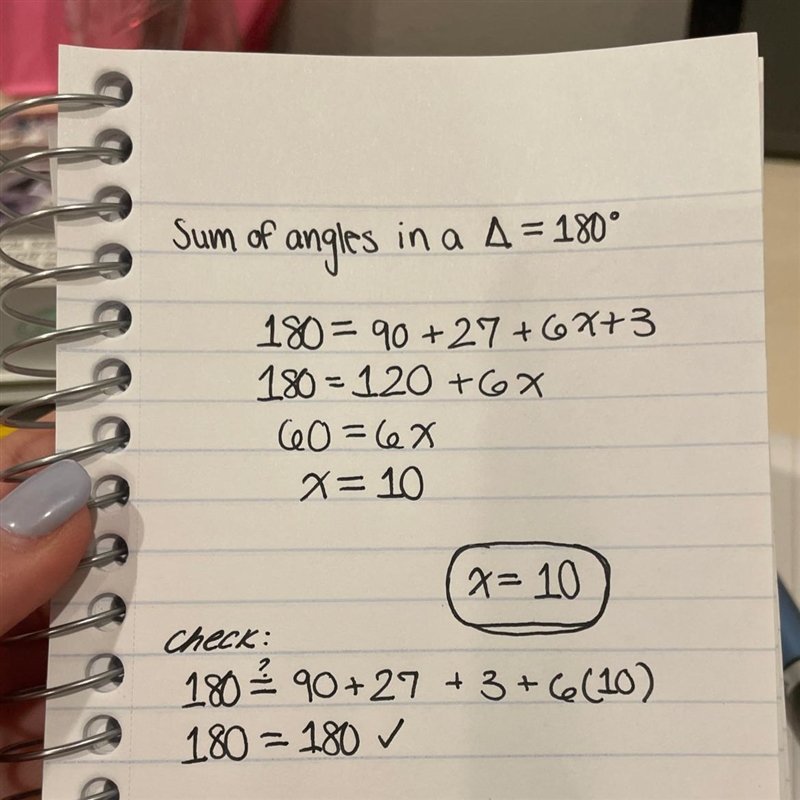 Sum of angles in a Δ = 180°
180 = 90 + 27 + 6x + 3
180 = 120 + 6x
60 = 6x
x = 10
x = 10
check:
180 ≟ 90 + 27 + 3 + 6(10)
180 = 180 ✓